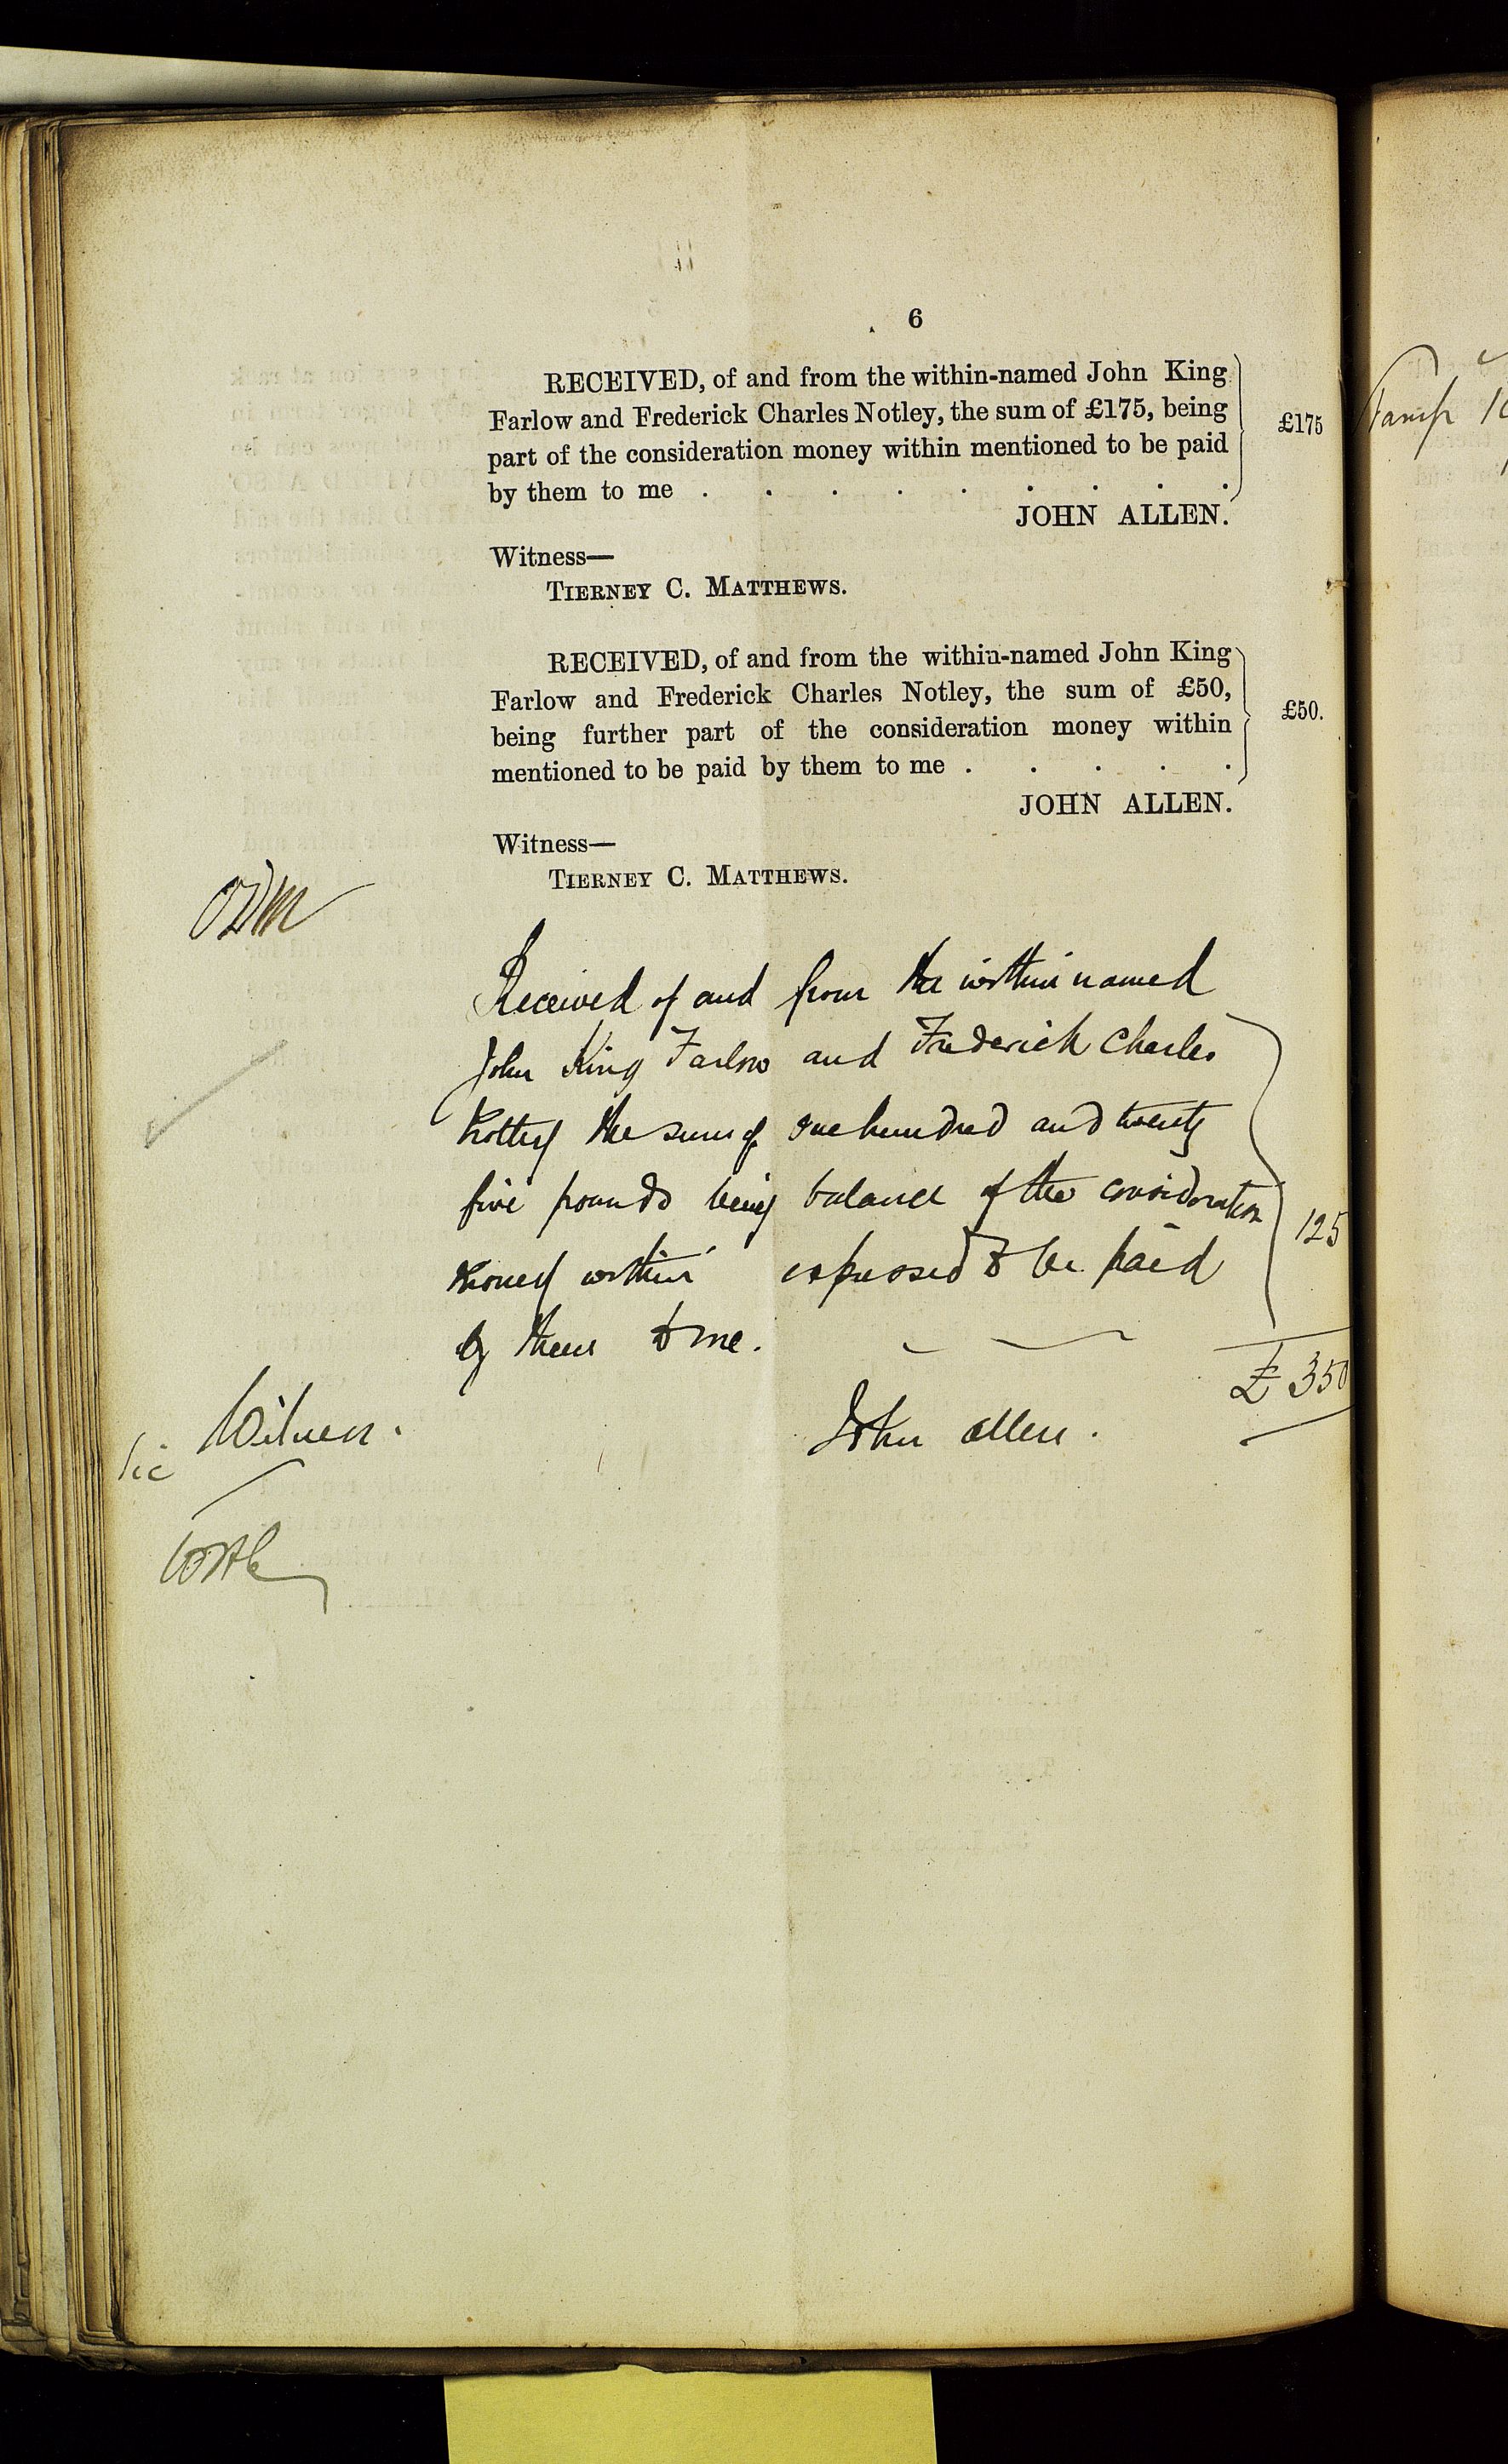 6
RECEIVED, of and from the within-named John King
Farlow and Frederick Charles Notley, the sum of £175, being
part of the consideration money within mentioned to be paid
by them to me . . . . . . . . .
£175
JOHN ALLEN.
Witness—
TIERNEY C. MATTHEWS.
RECEIVED, of and from the within-named John King
Farlow and Frederick Charles Notley, the sum of £50,
being further part of the consideration money within
mentioned to be paid by them to me . . . . .
£50.
JOHN ALLEN.
Witness—
TIERNEY C. MATTHEWS.
Received of and from the within named
John King Farlow and Frederick Charles
Notley the sum of one hundred and twenty
five pounds being balance of the consideration
money within expressed to be paid
by them to me.
125
£350
John Allen.
Witness.
Sic